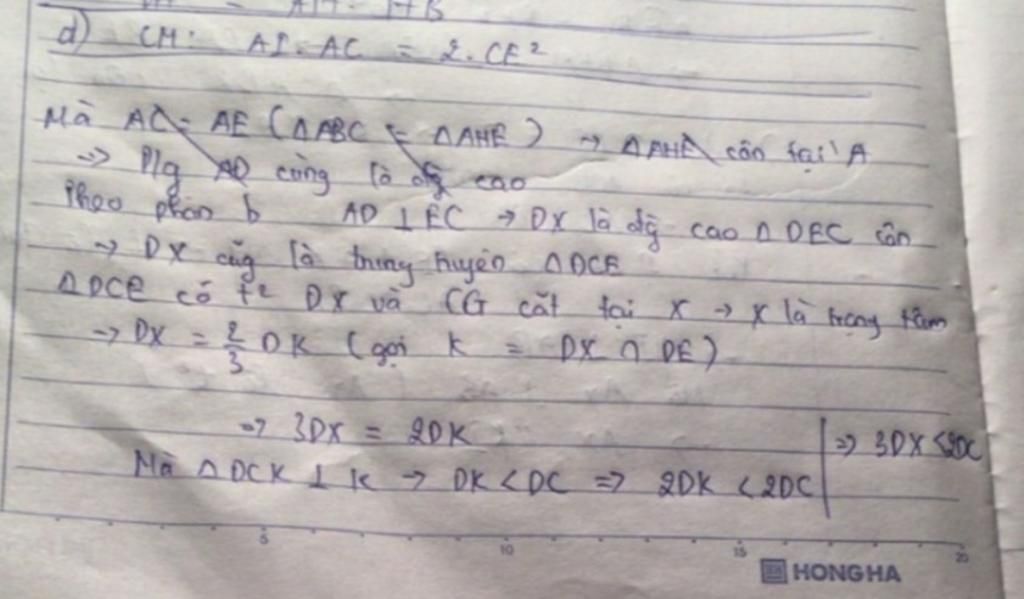 d) CM: AI.AC = 2.CE²
Mà AC = AE (ΔABC = ΔAHE) → ΔAHE cân tại A
=> P/g AD cũng là đg cao
Theo phần b AD ⊥ EC → DX là đg cao Δ DEC cân
→ DX cũg là trung tuyến ΔDCE
ΔDCE có t² DX và CG cắt tại X → X là trọng tâm
→ DX = 2/3 DK (gọi K = DX ∩ DE)
=> 3DX = 2DK
=> 3DX < 2DC
Mà ΔDCK ⊥ K → DK < DC => 2DK < 2DC
5 10 15 20
HONG HA